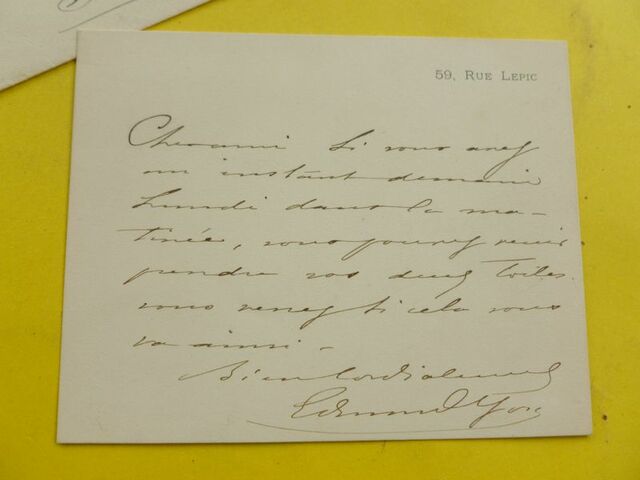 59, RUE LEPIC
Cher ami Si vous avez
un instant demain
Lundi dans la ma-
tinée, vous pouvez venir
pendre vos deux toiles.
vous venez si cela vous
va ainsi -
Bien Cordialement
Edmond Yon